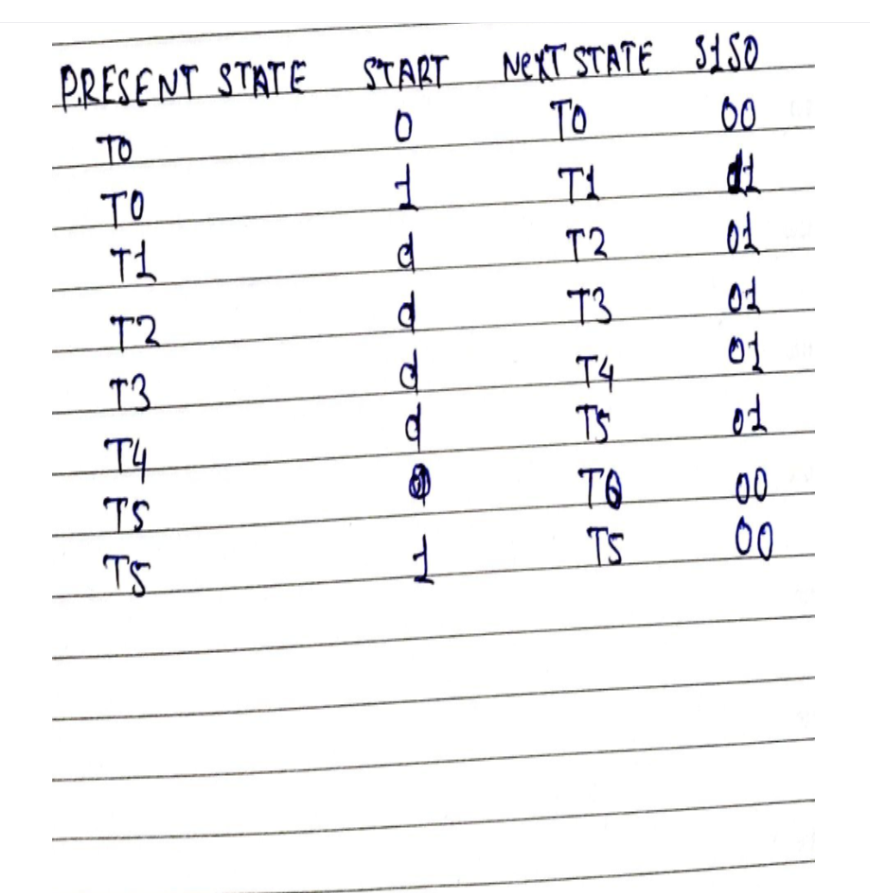 PRESENT STATE START NEXT STATE S1S0
T0 0 T0 00
T0 1 T1 11
T1 d T2 01
T2 d T3 01
T3 d T4 01
T4 d T5 01
T5 0 T0 00
T5 1 T5 00